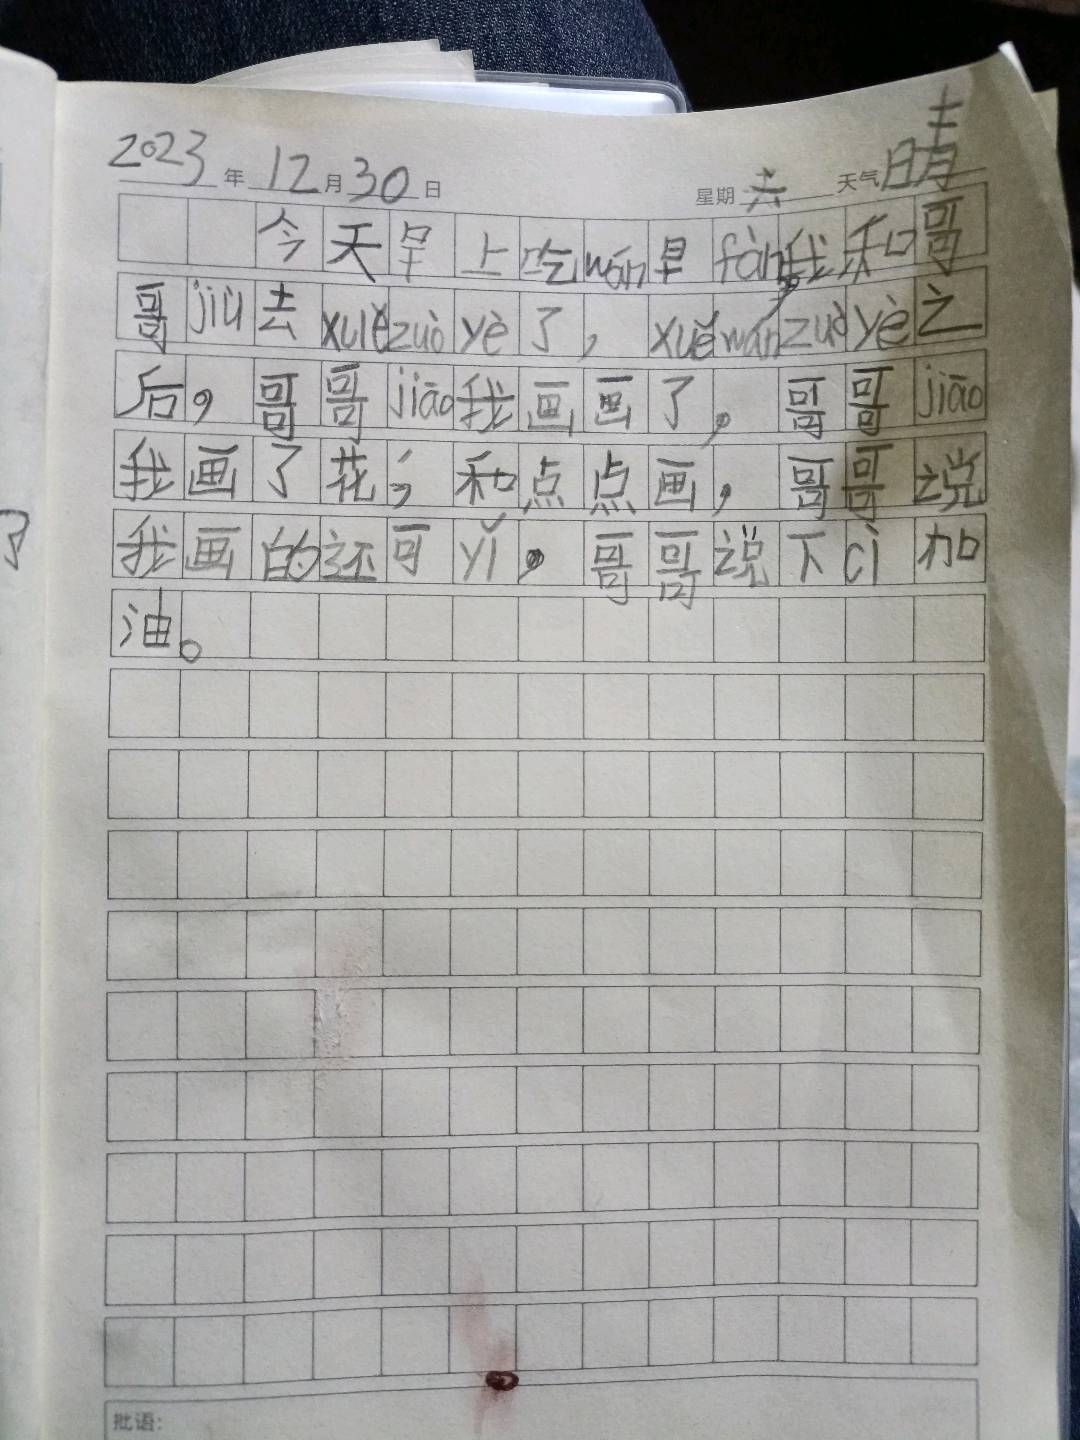 2023年12月30日 星期六 天气晴
今天早上吃wán早fàn,我和哥
哥jiù去xuiězuòyè了，xuěwánzuòyè之
后，哥哥jiāo我画画了，哥哥jiāo
我画了花，和点点画，哥哥说
我画的还可yǐ。哥哥说下cì加
油。
批语：